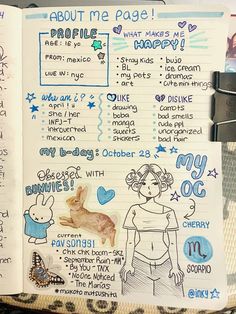 ABOUT Me PAGE!
PROFILE
AGE: 18 yo
FROM: mexico
LIVE IN: nyc
WHAT MAKES ME
HAPPY!
• Stray Kids
• BL
• my pets
• art
• bujo
• ice cream
• dramas
• cute mini things
who am i?
• april!
• she / her
• INFJ-T
• introverted
• mexican
LIKE
• drawing
• boba
• manga
• sweets
• stickers
DISLIKE
• carrots
• bad smells
• rude ppl
• unorganized
• bad hair
my b-day: October 28
Obsessed WITH
BUNNIES!
current
fav songs!
• Chk Chk boom - SKZ
• September Rain -
• By You - TNX
• No One Noticed
- The Marías
#makotomatsushita
MY
OC
CHERRY
SCORPIO
@inky